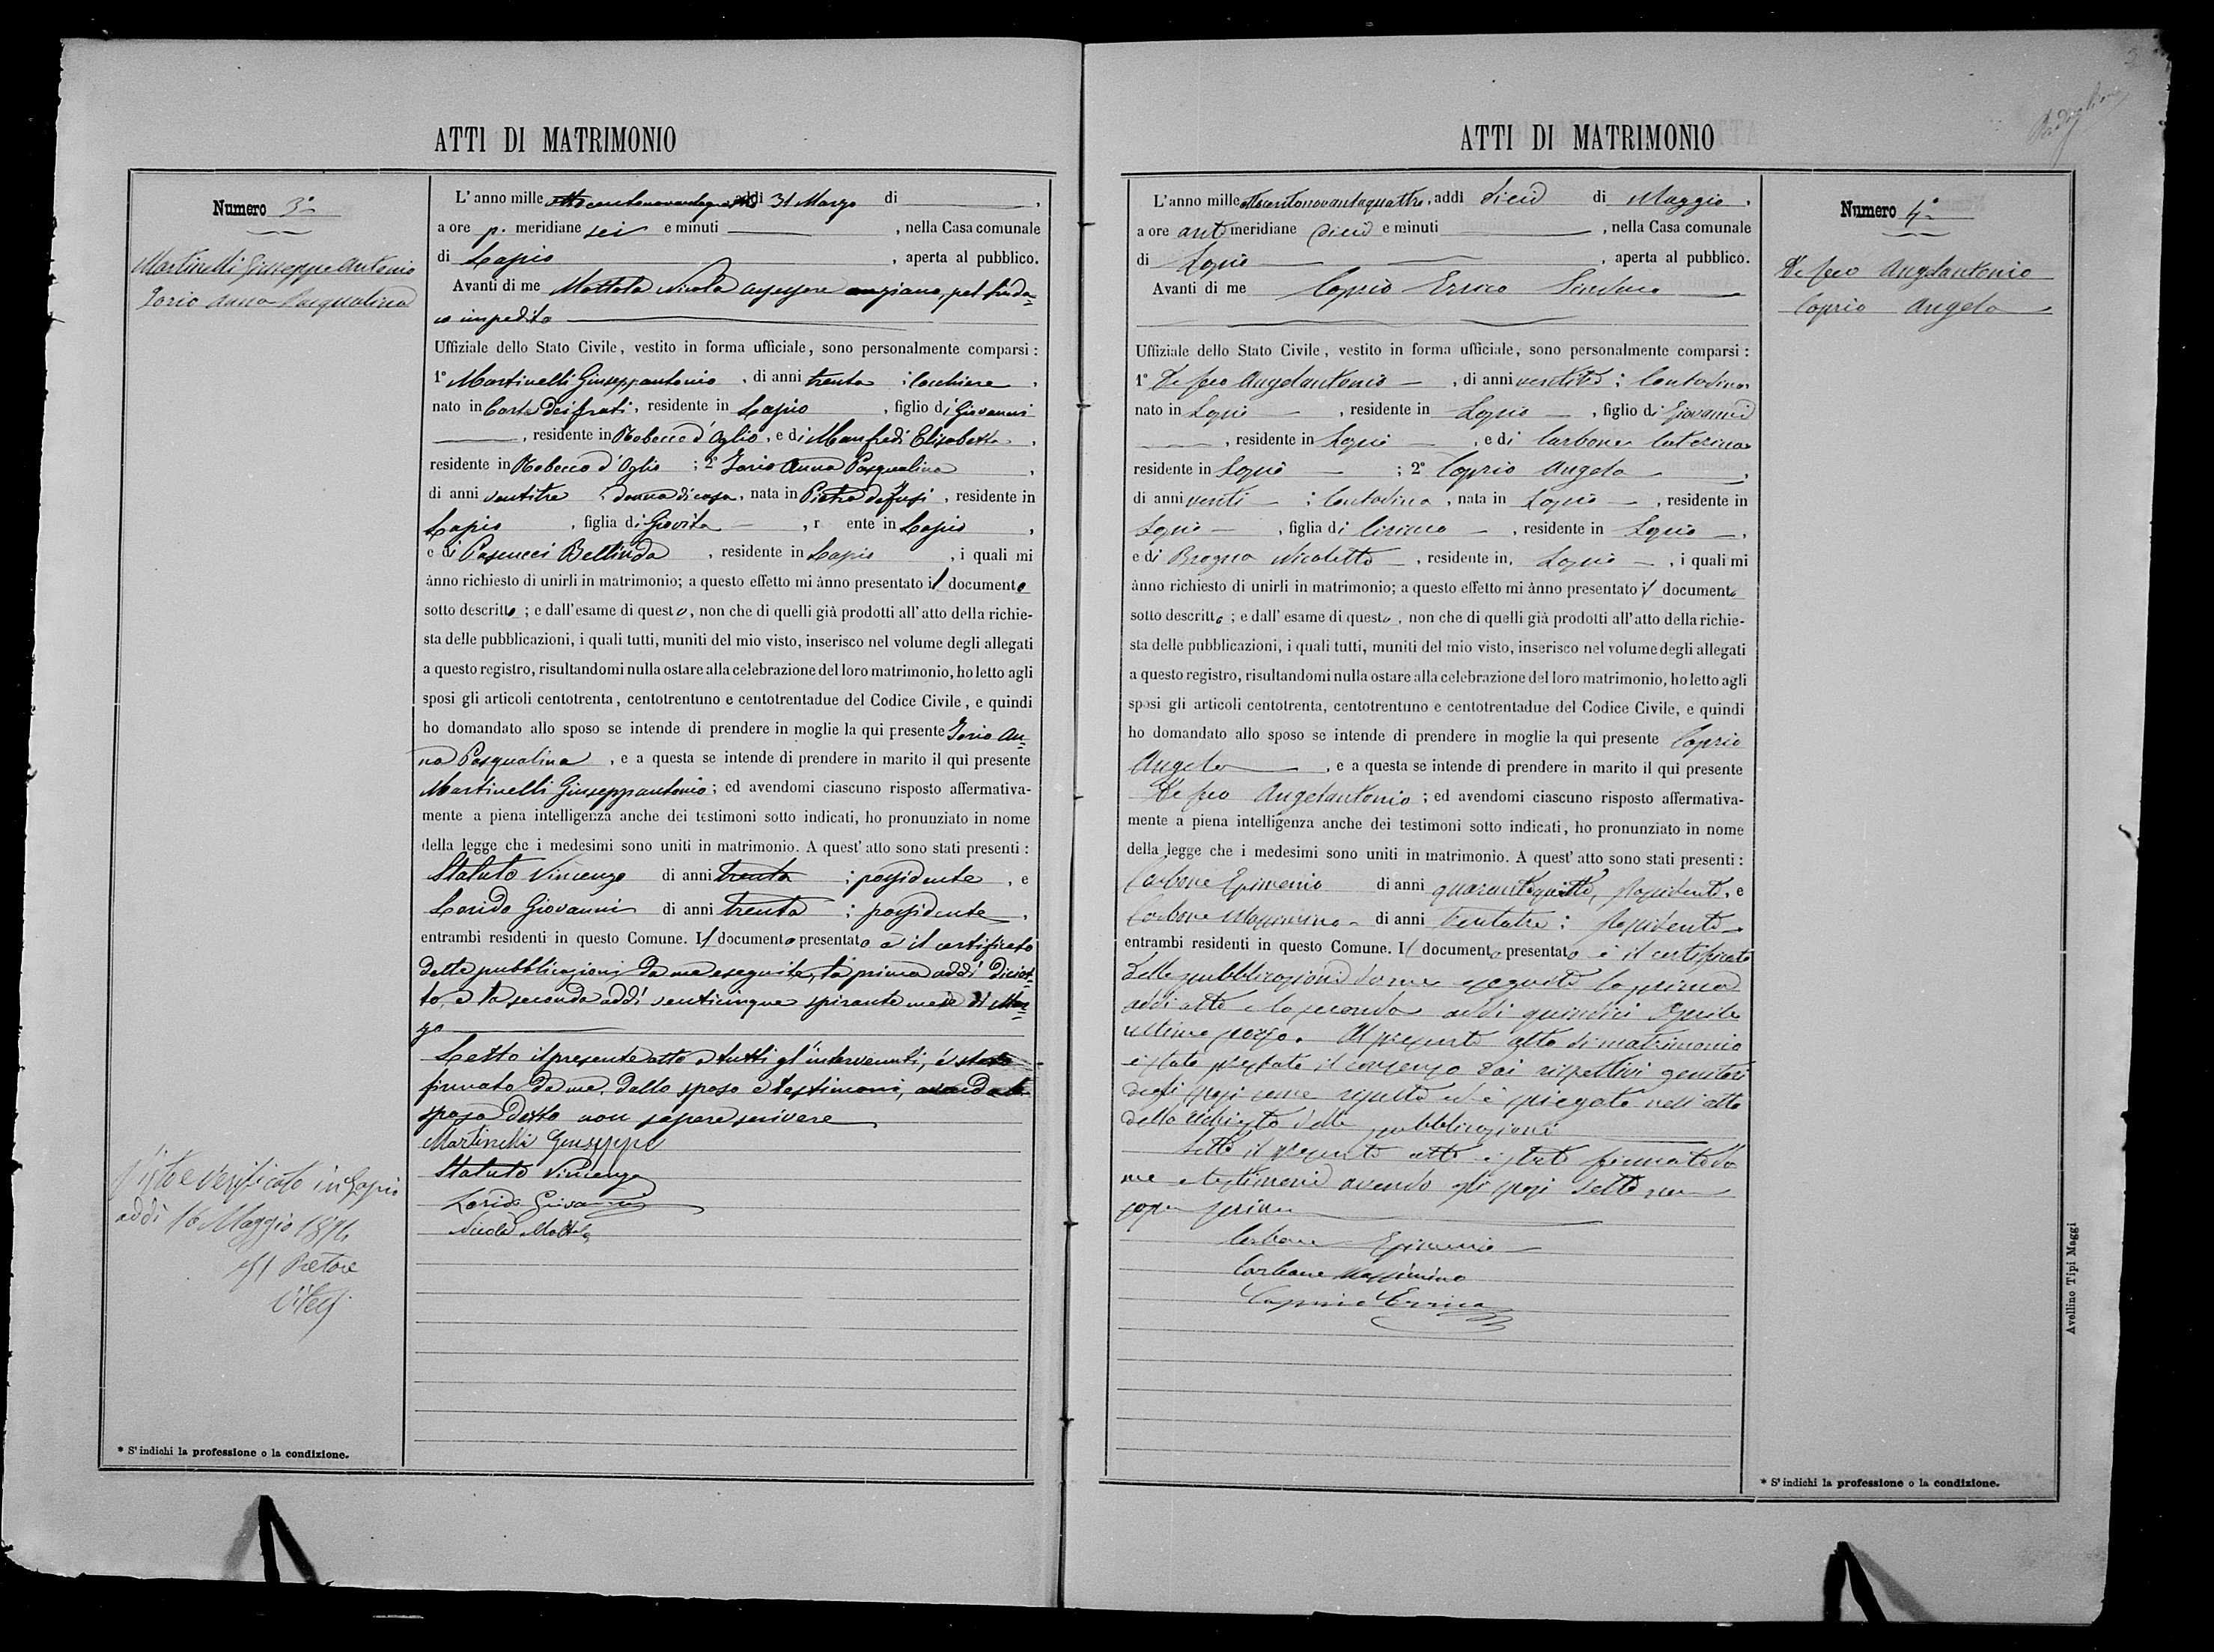 ATTI DI MATRIMONIO
Numero 3°
Martinelli Giuseppe Antonio
Iorio Anna Pasqualina
L'anno mille ottocentonovantaquattro addì 31 Marzo di
a ore p. meridiane sei e minuti , nella Casa comunale
di Lapio , aperta al pubblico.
Avanti di me Mottola Nicola assessore anziano, pel Sinda=
co impedito
Uffiziale dello Stato Civile, vestito in forma ufficiale, sono personalmente comparsi:
1° Martinelli Giuseppantonio, di anni trenta; Cocchiere,
nato in Corte dei frati, residente in Lapio, figlio di Giovanni
, residente in Robecco d'Oglio, e di Manfredi Elisabetta,
residente in Robecco d'Oglio; 2° Iorio Anna Pasqualina,
di anni ventitre; donna di casa, nata in Pietra defusi, residente in
Lapio, figlia di Giovita, r ente in Lapio,
e di Pascucci Bellinda, residente in Lapio, i quali mi
ànno richiesto di unirli in matrimonio; a questo effetto mi ànno presentato il documento
sotto descritto; e dall'esame di questo, non che di quelli già prodotti all'atto della richie-
sta delle pubblicazioni, i quali tutti, muniti del mio visto, inserisco nel volume degli allegati
a questo registro, risultandomi nulla ostare alla celebrazione del loro matrimonio, ho letto agli
sposi gli articoli centotrenta, centotrentuno e centotrentadue del Codice Civile, e quindi
ho domandato allo sposo se intende di prendere in moglie la qui presente Iorio An=
na Pasqualina, e a questa se intende di prendere in marito il qui presente
Martinelli Giuseppantonio; ed avendomi ciascuno risposto affermativa-
mente a piena intelligenza anche dei testimoni sotto indicati, ho pronunziato in nome
della legge che i medesimi sono uniti in matrimonio. A quest'atto sono stati presenti:
Statuto Vincenzo di anni trenta; possidente, e
Lorido Giovanni di anni trenta; possidente,
entrambi residenti in questo Comune. Il documento presentato è il certificato
delle pubblicazioni da me eseguite, la prima addì diciot=
to, e la seconda addì venticinque spirante mese di Mar=
zo
Letto il presente atto a tutti gl'intervenuti, è stato
firmato da me, dallo sposo e testimoni, avendo la
sposa detto non sapere scrivere
Martinelli Giuseppe
Statuto Vincenzo
Lorido Giovanni
Nicola Mottola
Visto e verificato in Lapio
addì 16 Maggio 1894
Il Pretore
* S'indichi la professione o la condizione.
ATTI DI MATRIMONIO
Numero 4°
De feo Angelantonio
Caprio Angela
L'anno mille ottocentonovantaquattro, addì dieci di Maggio,
a ore anti meridiane dieci e minuti , nella Casa comunale
di Lapio , aperta al pubblico.
Avanti di me Caprio Errico Sindaco
Uffiziale dello Stato Civile, vestito in forma ufficiale, sono personalmente comparsi:
1° De feo Angelantonio, di anni; Contadino,
nato in Lapio, residente in Lapio, figlio di Giovanni
, residente in Lapio, e di Carbone Caterina
residente in Lapio; 2° Caprio Angela,
di anni venti; Contadina, nata in Lapio, residente in
Lapio, figlia di Ciriaco, residente in Lapio,
e di Brogna Nicoletta, residente in Lapio, i quali mi
ànno richiesto di unirli in matrimonio; a questo effetto mi ànno presentato il documento
sotto descritto; e dall'esame di questo, non che di quelli già prodotti all'atto della richie-
sta delle pubblicazioni, i quali tutti, muniti del mio visto, inserisco nel volume degli allegati
a questo registro, risultandomi nulla ostare alla celebrazione del loro matrimonio, ho letto agli
sposi gli articoli centotrenta, centotrentuno e centotrentadue del Codice Civile, e quindi
ho domandato allo sposo se intende di prendere in moglie la qui presente Caprio
Angela, e a questa se intende di prendere in marito il qui presente
De feo Angelantonio; ed avendomi ciascuno risposto affermativa-
mente a piena intelligenza anche dei testimoni sotto indicati, ho pronunziato in nome
della legge che i medesimi sono uniti in matrimonio. A quest'atto sono stati presenti:
Carbone Epimenio di anni, possidente, e
Carbone Massimino di anni trentatre; possidente
entrambi residenti in questo Comune. Il documento presentato è il certificato
delle pubblicazioni da me eseguite la prima
addì otto e la seconda addì quindici Aprile
ultimo scorso. Al presente atto di matrimonio
è stato prestato il consenso dai rispettivi genitori
degli sposi come risulta ed è spiegato nell'atto
della richiesta delle pubblicazioni
Letto il presente atto è stato firmato da
me e testimoni avendo gli sposi detto non
saper scrivere
Carbone Epimenio
Carbone Massimino
Caprio Errico
* S'indichi la professione o la condizione.
Avellino Tipi Maggi